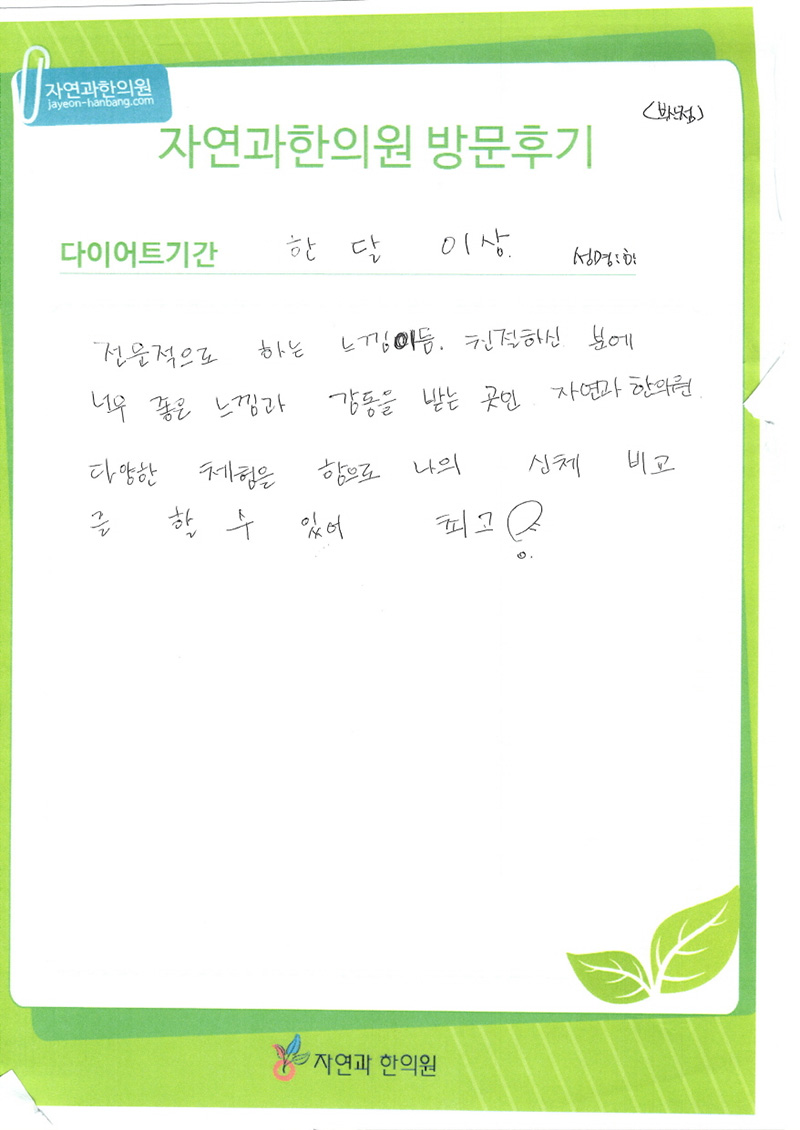 자연과한의원
jayeon-hanbang.com
(본점)
자연과한의원 방문후기
다이어트기간 한 달 이상. 성명:하
전문적으로 하는 느낌이듬. 친절하신 분에
너무 좋은 느낌과 감동을 받는 곳인 자연과 한의원.
다양한 체험을 함으로 나의 신체 비교
를 할 수 있어 최고!
자연과 한의원